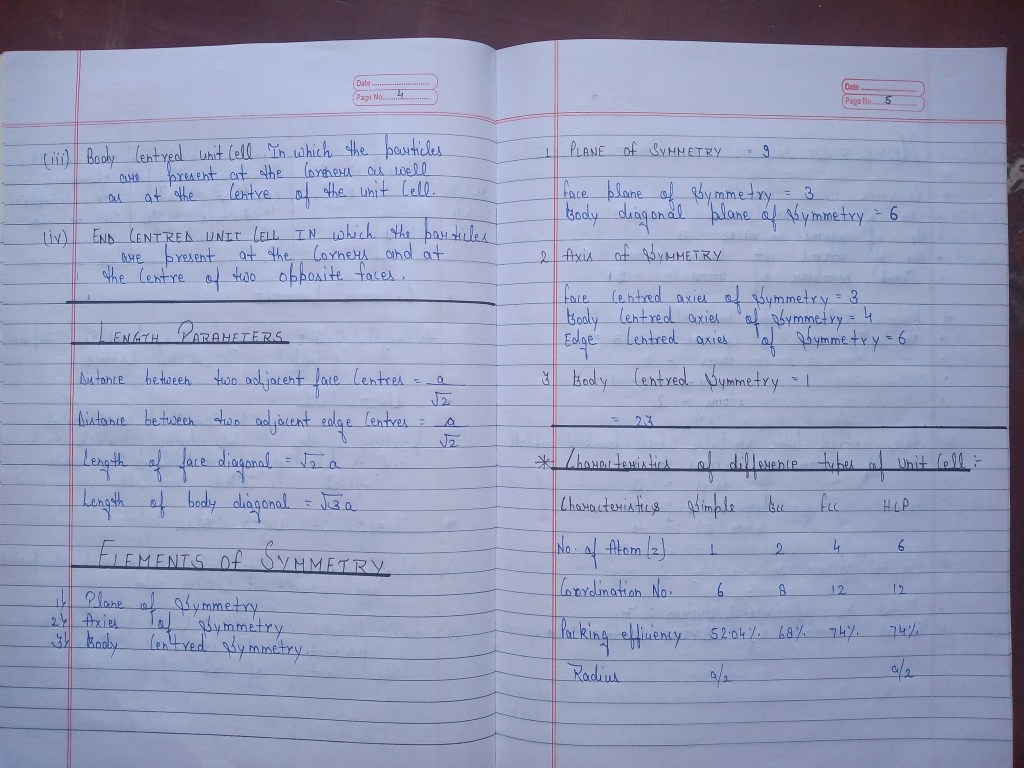 Date
Page No. 4
(iii) Body Centred unit Cell In which the particles
are present at the Corners as well
as at the Centre of the unit Cell.
(iv) END CENTRED UNIT CELL IN which the particles
are present at the Corners and at
the Centre of two opposite faces.
LENGTH PARAMETERS
Distance between two adjacent face Centres = a/√2
Distance between two adjacent edge Centres = a/√2
Length of face diagonal = √2 a
Length of body diagonal = √3 a
ELEMENTS Of SYMMETRY
1} Plane of Symmetry
2} Axies of Symmetry
3} Body Centred Symmetry.
Date
Page No. 5
1 PLANE of SYMMETRY = 9
face plane of Symmetry = 3
Body diagonal plane of Symmetry = 6
2 Axis of SYMMETRY
Face Centred axies of Symmetry = 3
Body Centred axies of Symmetry = 4
Edge Centred axies of Symmetry = 6
3 Body Centred Symmetry = 1
= 23
* Characteristics of difference types of unit Cell :-
Characteristics Simple Bcc fcc HCP
No. of Atom (z) 1 2 4 6
Coordination No. 6 8 12 12
Packing effiency 52.04% 68% 74% 74%
Radius a/2 a/2